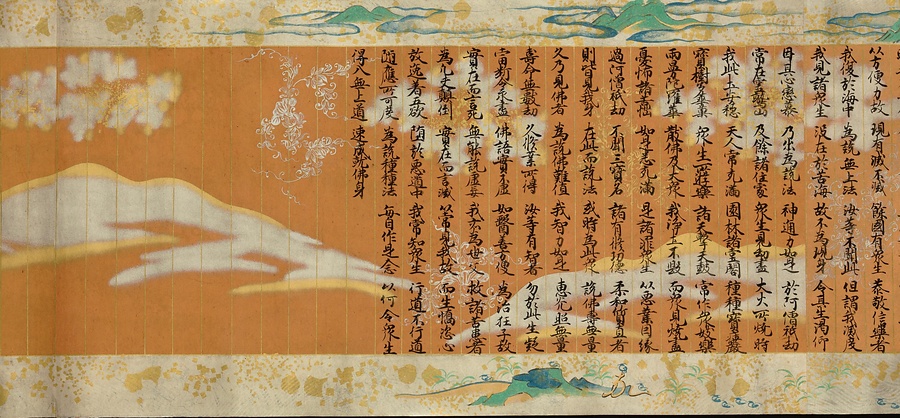 以方便力故 現有滅不滅 餘國有衆生 恭敬信樂者
我復於彼中 為說無上法 汝等不聞此 但謂我滅度
我見諸衆生 沒在於苦海 故不為現身 令其生渴仰
因其心戀慕 乃出為說法 神通力如是 於阿僧祇劫
常在靈鷲山 及餘諸住處 衆生見劫盡 大火所燒時
我此土安穩 天人常充滿 園林諸堂閣 種種寶莊嚴
寶樹多華菓 衆生所遊樂 諸天擊天鼓 常作衆伎樂
雨曼陀羅華 散佛及大衆 我淨土不毀 而衆見燒盡
憂怖諸苦惱 如是悉充滿 是諸罪衆生 以惡業因緣
過阿僧祇劫 不聞三寶名 諸有修功德 柔和質直者
則皆見我身 在此而說法 或時為此衆 說佛壽無量
久乃見佛者 為說佛難值 我智力如是 慧光照無量
壽命無數劫 久修業所得 汝等有智者 勿於此生疑
當斷令永盡 佛語實不虛 如醫善方便 為治狂子故
實在而言死 無能說虛妄 我亦為世父 救諸苦患者
為凡夫顛倒 實在而言滅 以常見我故 而生憍恣心
放逸著五欲 墮於惡道中 我常知衆生 行道不行道
隨應所可度 為說種種法 每自作是念 以何令衆生
得入無上道 速成就佛身